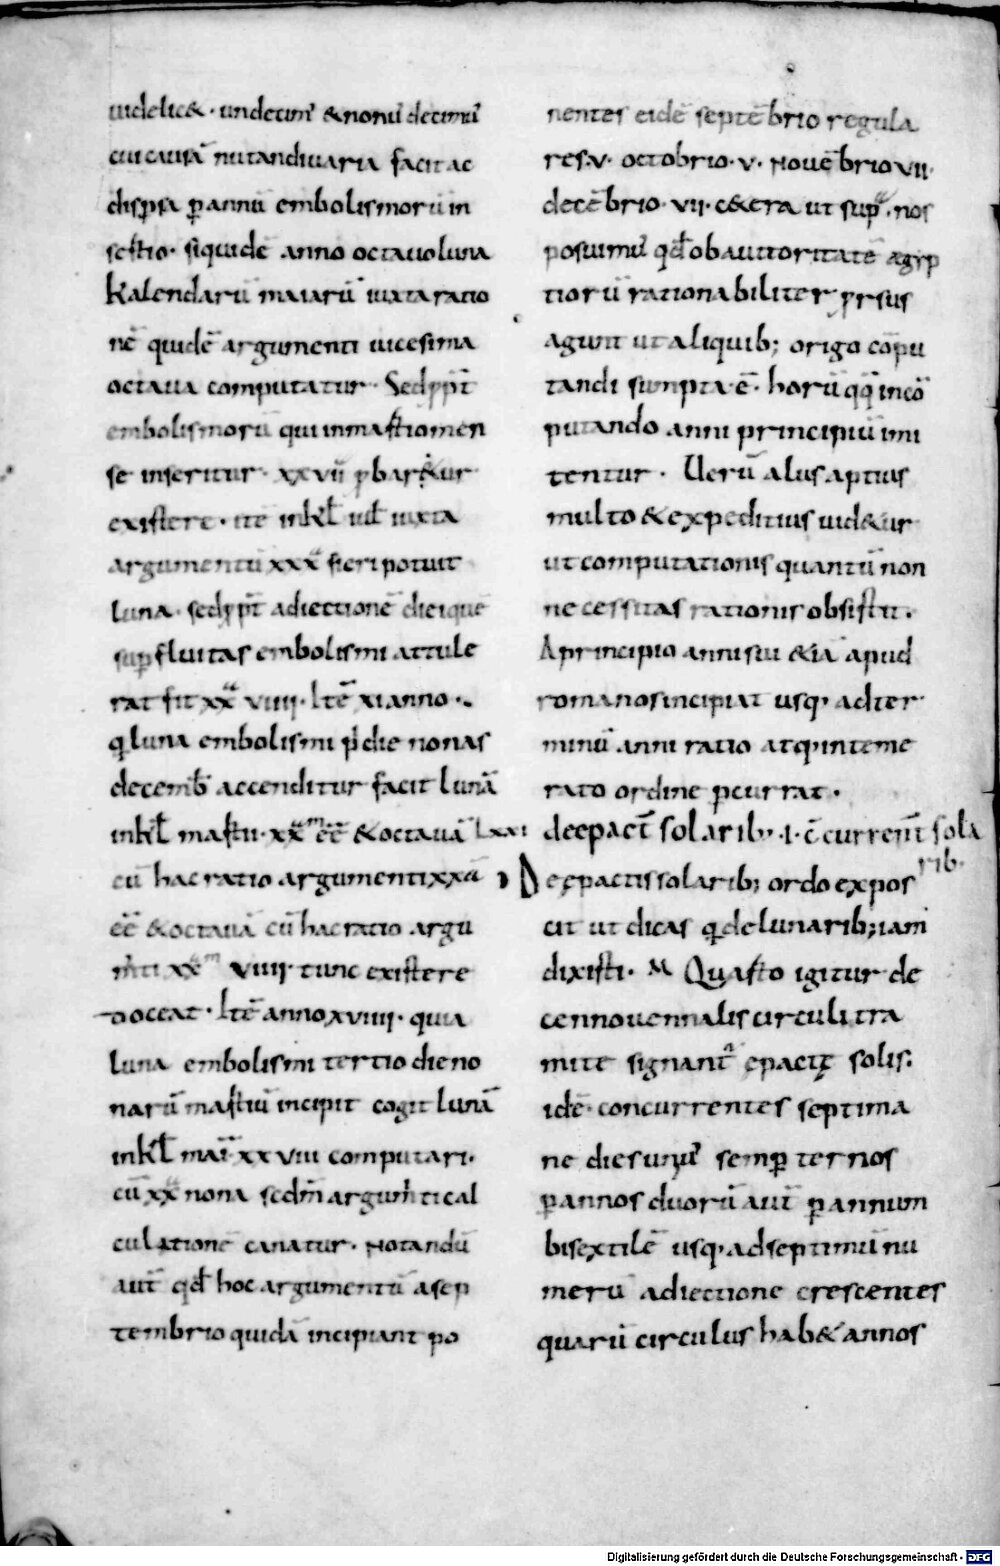 uidelic&· undecim' & nonu' decimu'
cui causā nutandi uaria facit ac
dispsa p annū embolismorū in
sertio· siquidē anno octauo luna
Kalendarū maiarū iuxta ratio
nē quidē argumenti uicesima
octaua computatur· Sed
embolismorū qui in martio men
se inseritur· xxvii pbar&ur
existere· itē in kł iuł iuxta
argumentū xxx fieri potuit
luna· sed adiectionē diei quē
supfluitas embolismi attule
rat fit xx viiii· Itē xi anno·
q luna embolismi pdie nonas
decemb accenditur facit lunā
in kł martii· xx ēē & octauā
cū hac ratio argumenti xxa
ēē & octauā cū hac ratio argu
mti xx viiii· tunc existere
doceat· Itē anno xviiii· quia
luna embolismi tertio die no
narū martiū incipit cogit lunā
in kł mai xxviii computari·
cū xx nona scdm argumti cal
culationē canatur· Notandū
aut qd hoc argumentū a sep
tembrio quidā incipiant po
nentes eidē septēbrio regula
res·v· octobrio·v· Nouēbrio vii·
decēbrio·vii· c&era ut sup· nos
posuimu' qd ob auctoritatē ęgyp
tiorū rationabiliter prsus
agunt ut a liquib; origo cōpu
tandi sumpta·ē· horū qq in cō
putando anni principiū imi
tentur· Uerū aliis aptius
multo & expeditius uid&ur
ut computationis quantū non
necessitas rationis obsistit·
A principio anni sui &iā apud
romanos incipiat usq· ad ter
minū anni ratio atq· inteme
rato ordine pcurrat·
Lxxi de epact solarib;·i·c current sola
rib·
De epactis solarib; ordo expos
cit ut dicas q de lunarib; iam
dixisti· M Quarto igitur de
cennouennalis circuli tra
mite signant epactę solis·
idē· concurrentes septima
ne dierum semp ternos
p annos duorū aut p annum
bisextilē usq· ad septimū nu
merū adiectione crescentes
quarū circulus hab& annos